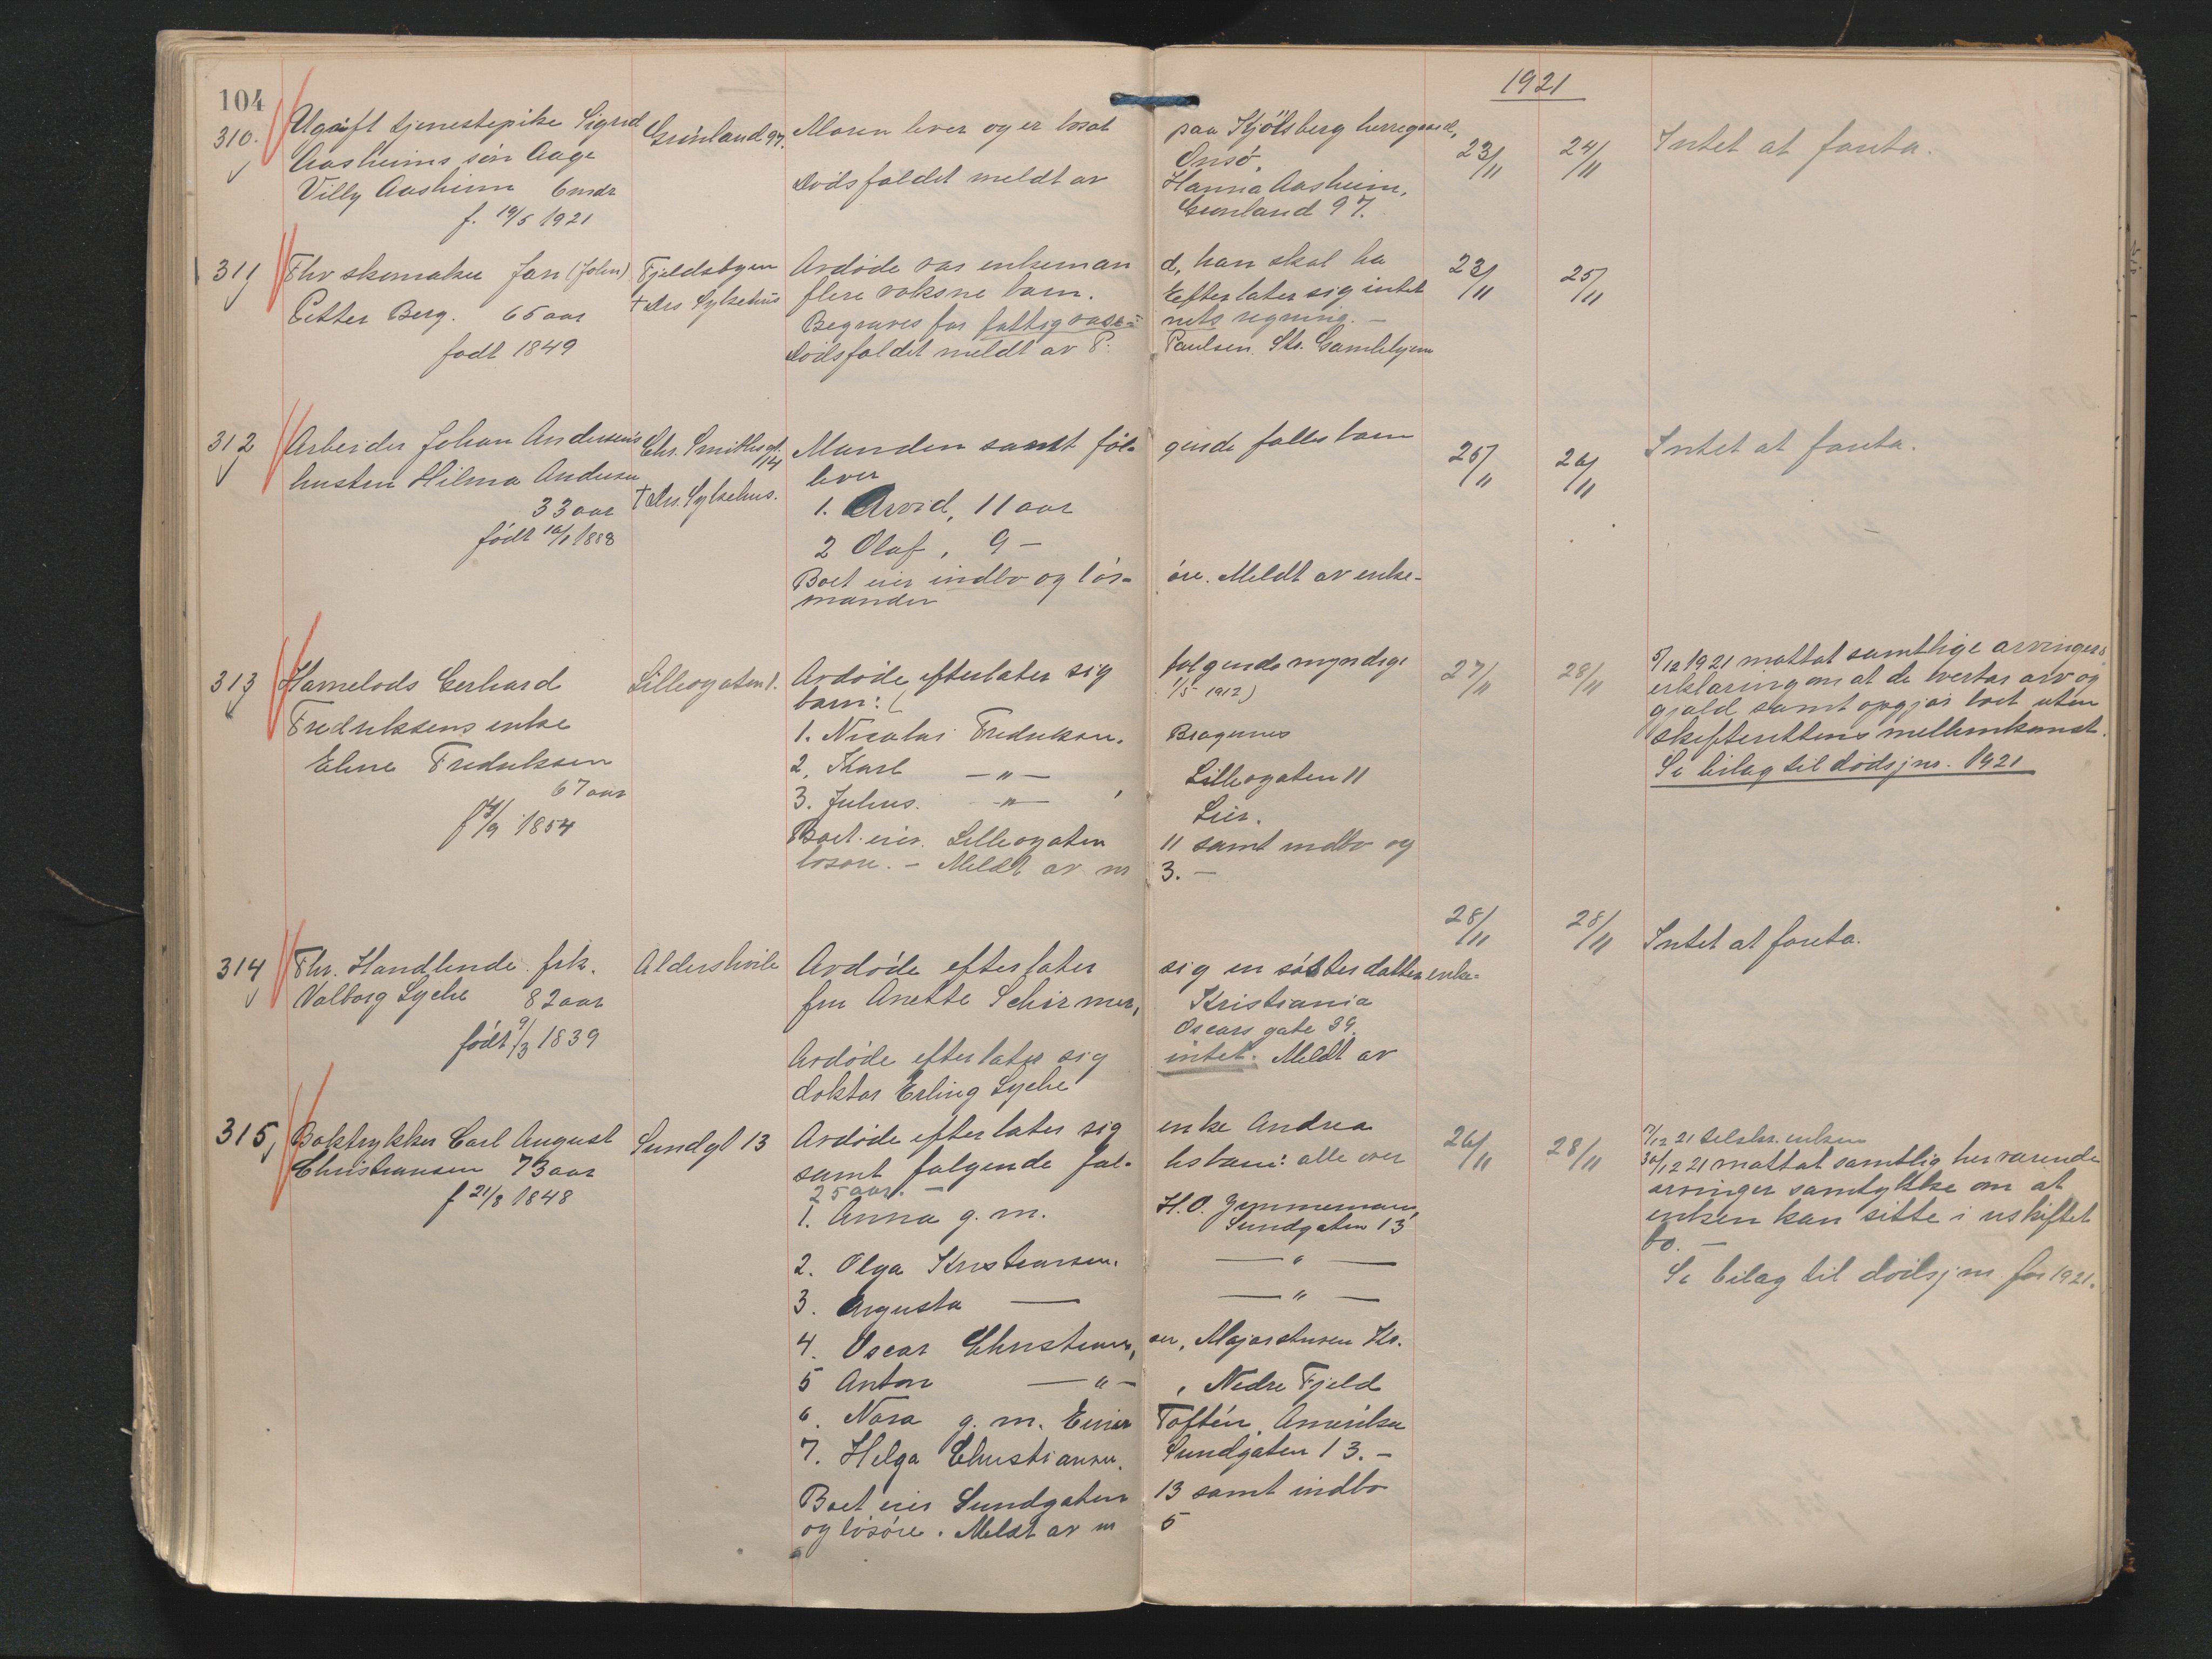 104
1921
310. Ugift tjenestepike Sigrid Grönland 97. Moren lever og er bosat paa Kjölsberg herregaard, 23/11 24/11 Intet at foreta.
Aasheims sön Aage Onsö.
Villy Aasheim 6 mdr Dödsfaldet meldt av Hanna Aasheim,
f. 19/5 1921 Grönland 97.
311 Fhv skomaker Jan (John) Fjeldsbyen Avdöde var enkeman d, han skal ha 23/11 25/11
Petter Berg. 65 aar + Drs Sykehus flere voksne barn. Efterlater sig intet
Begraves for fattigvæse- nets regning. –
födt 1849 Dödsfaldet meldt av P. Paulsen. Str. Gamlehjem
312 Arbeider Johan Andersens Chr. Smithsgt. 14 Manden samt föl- gende fælles barn 25/11 26/11 Intet at foreta.
hustru Hilma Andersen + Drs. Sykehus. lever
33 aar 1. Arvid, 11 aar
födt 10/1 1888 2 Olaf, 9 –
Boet eier indbo og lös- öre. Meldt av enke-
manden
313 Havnelods Gerhard Lilleogaten 1. Avdöde efterlater sig fölgende myndige 27/11 28/11 5/12 1921 mottat samtlige arvingers
barn: ( 1/5 1912) erklæring om at de overtar arv og
Fredriksens enke 1. Nicolai Fredriksen. Bragernes gjæld samt opgjör boet uten
Eline Fredriksen 2. Karl –„– Lilleogaten 11 skifterettens mellemkomst.
67 aar 3. Julius. –„– , Lier. Se bilag til dödsjnr. 1921
/9 1854 Boet eier Lilleogaten 11 samt indbo og
lösöre. – Meldt av nr 3. –
314 Fhv. Handlende frk. Aldershvile Avdöde efterlater sig en sösterdatter enke- 28/11 28/11 Intet at foreta.
Valborg Lyche 82 aar fru Anette Schirmer, Kristiania
Oscars gate 39.
födt 9/3 1839 Avdöde efterlater sig intet. Meldt av
doktor Erling Lyche
315, Boktrykker Carl August Sundgt 13 Avdöde efterlater sig enke Andrea 26/11 28/11 7/12 21 tilskr. enken
Christiansen 73 aar samt fölgende fæl- lesbarn: alle over 30/12 21 mottat samtlig herværende
f 21/8 1848 25 aar. – arvinger samtykke om at
1. Anna g. m. H. O. Zimmermann, Sundgaten 13 enken kan sitte i uskiftet
bo. –
2. Olga Kristiansen. –„– Se bilag til dödsjnr for 1921.
3. Augusta — –„–
4. Oscar Christians, en, Majorstuen Kr.
5 Anton –„– , Nedre Fjeld
6. Nora g. m. Einar Toftén, Amerika
7. Helga Christiansen. Sundgaten 13. –
Boet eier Sundgaten 13 samt indbo
og lösöre. Meldt av nr 5